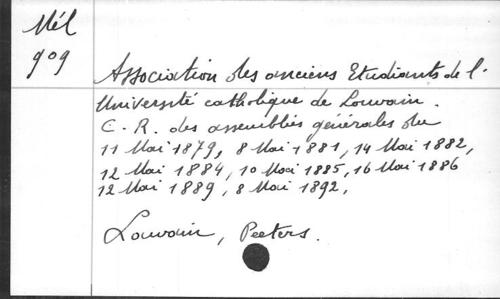 Mél
909
Association des anciens Etudiants de l'
Université catholique de Louvain.
C. R. des assemblées générales du
11 Mai 1879, 8 Mai 1881, 14 Mai 1882,
12 Mai 1884, 10 Mai 1885, 16 Mai 1886
12 Mai 1889, 8 Mai 1892,
Louvain, Peeters.